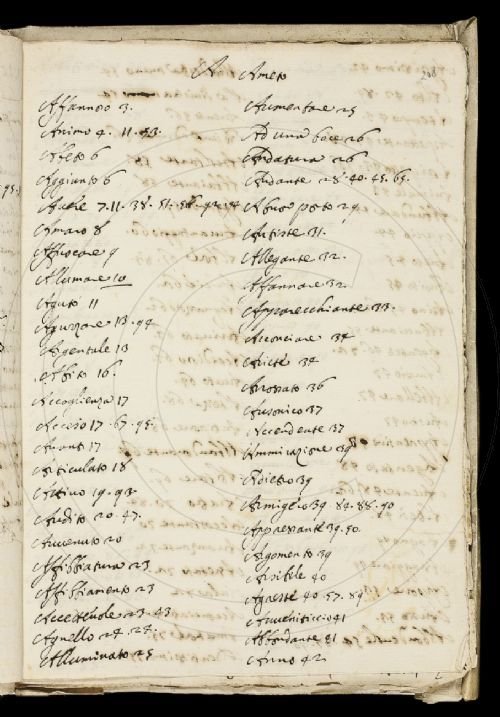 A Ameto
208
Affannoso 3.
Animo 4. 11. 93.
Abeto 6
Aggiunto 6
Aulire 7. 11. 38. 51.
Amaro 8
Affuocare 9
Allumare 10
Aguto 11
Aguzzare 13. 94
Argentale 13
Abito 16
Accoglienza 17
Acceso 17. 67. 95.
Avanti 17
Articulato 18
Attivo 19. 93.
Audito 20. 47.
Avvenuto 20
Affibbiatura 23
Affibbiamento 23
Accettevole 23. 43
Agnello 24. 27.
Alluminato 25
Aumentare 25
Ad una boce 26
Andatura 26
Andante 28. 40. 45. 65.
A suo posto 29
Artiste 31.
Allegante 32.
Affannare 32.
Apparecchiante 33.
Acconciare 34
Ariete 34
Arrossato 36
Ausonico 37
Accendente 37
Ammirazione 39
Adietro 39
Armigero 39. 84. 88. 90
Appressante 39. 50.
Argomento 39
40
Agreste 40. 57. 89
Avveniticcio 41
Abbondante 41
Anno 42